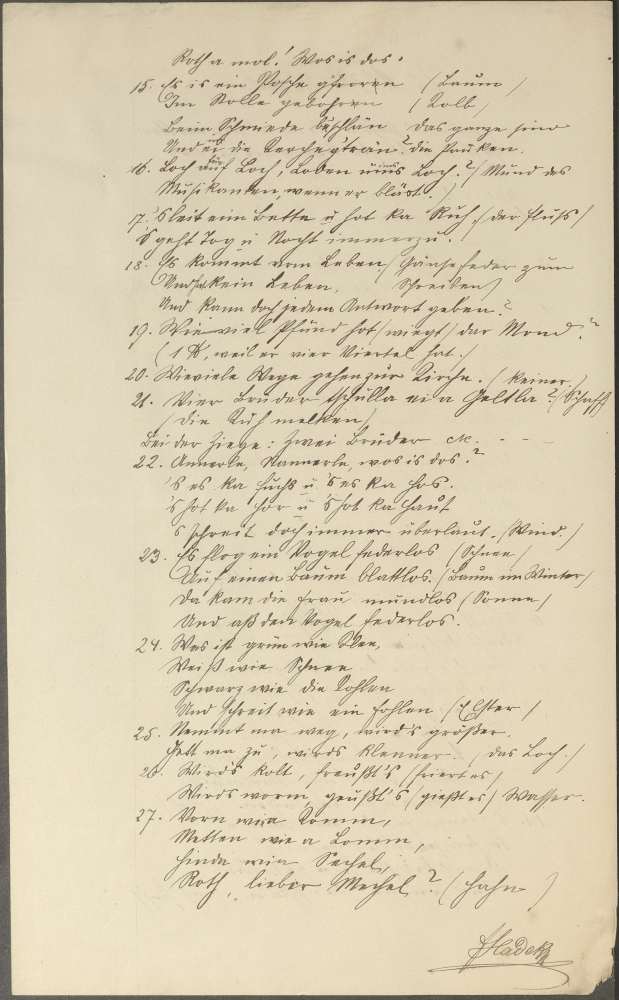 Roth a mol! Wos is dos.
15. Es is ein Posche gfroren (Baum)
Im Kolle gebohren (Kolb)
Beim Schmiede beschlän das ganze sind
Und ei die Kerche gtran? die Pauken.
16. Loch auf Loch, Loben ums Loch? (Mund des
Musikanten, wenn er bläst.)
17. 's leit eim Bette u hot ka Ruh, (der Fluß)
's geht Tog u Nocht immerzu.
18. Es kommt vom Leben (Gänsefeder zum
Und kein Leben, Schreiben)
Und kann doch jedem Antwort geben?
19. Wie viel Pfund hot (wiegt) der Mond?
(1 ℔, weil er vier Viertel hat.)
20. Wieviele Wege gehen zur Kirche. (keiner.)
21. Vier Brüder tschulla ei a Geltla? (Schaff)
(die Kuh melken)
Bei der Ziege: Zwei Brüder etc. - - -
22. Annerle, Nannerle, wos is dos?
's es ka Fuchs u 's es ka Hos.
's hot ka Hor u 's hot ka Haut
's schreit doch immer überlaut. (Wind.)
23. Es flog ein Vogel federlos (Schnee)
Auf einen Baum blattlos. (Baum im Winter)
Da kam die Frau mundlos (Sonne)
Und aß den Vogel federlos.
24. Was ist grün wie Klee,
Weiß wie Schnee
Schwarz wie die Kohlen
Und schreit wie ein Fohlen (Elster)
25. Nemmt ma weg, wird's größer.
Hett ma zu, wirds klenner. (das Loch.)
26. Wirds kolt, freußt's (friert es)
Wirds worm, geußt's (gießt es) Wasser.
27. Vorn wie a Komm,
Metten wie a Lomm,
Hinda wie a Sechel,
Roth, lieber Mechel? (Hahn)
Hladek